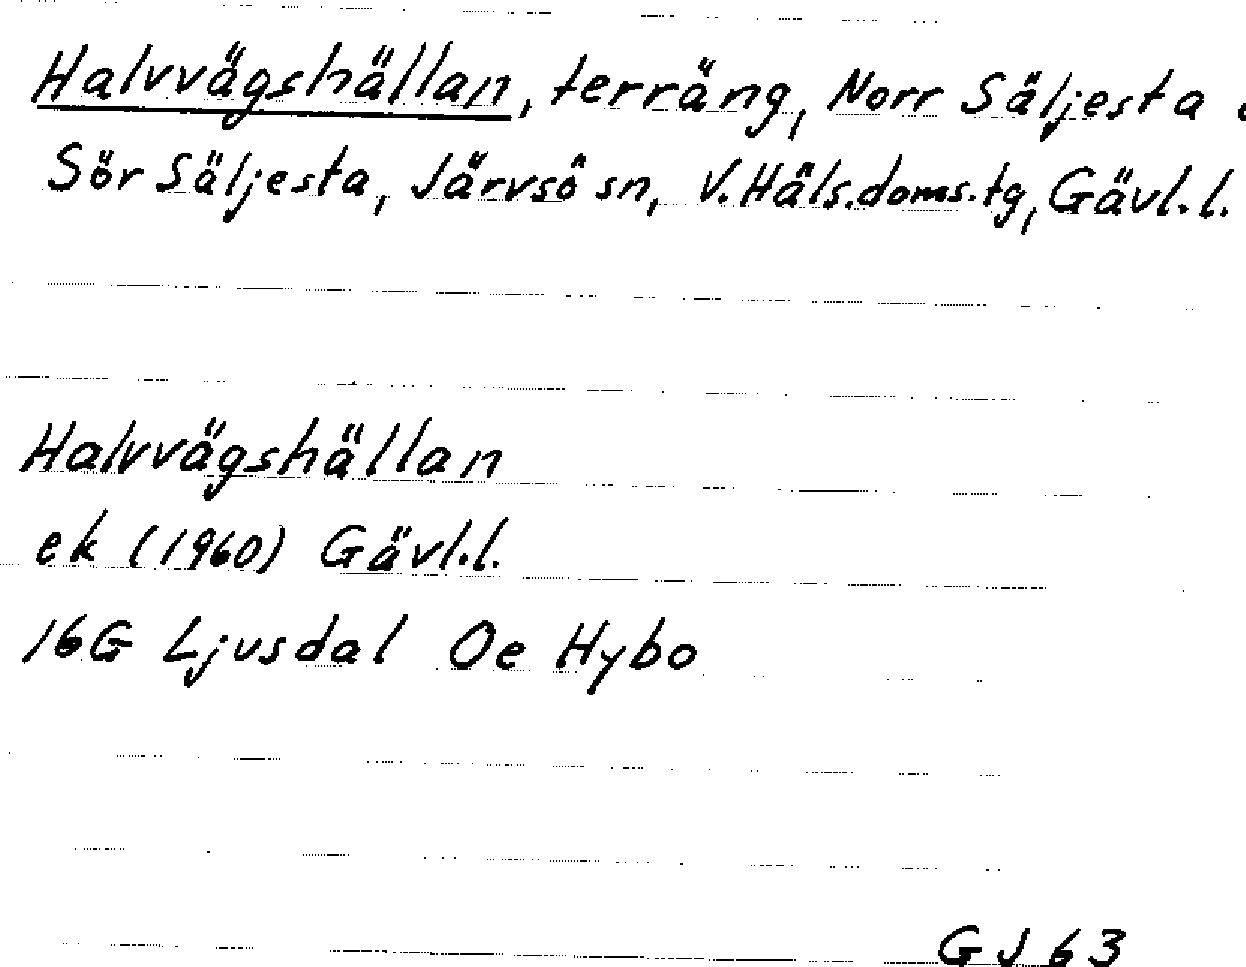 Halvvägshällan, terräng, Norr Säljesta
Sör Säljesta, Järvsö sn, V. Häls.doms.tg, Gävl.l.
Halvvägshällan
ek (1960) Gävl.l.
16G Ljusdal Oe Hybo
GJ 63